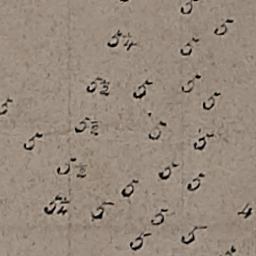 5
5
5¼
5
5½
5
5
5
5
5½
5
5
5
5½
5
5
5
5¼
5
5
4
5
5